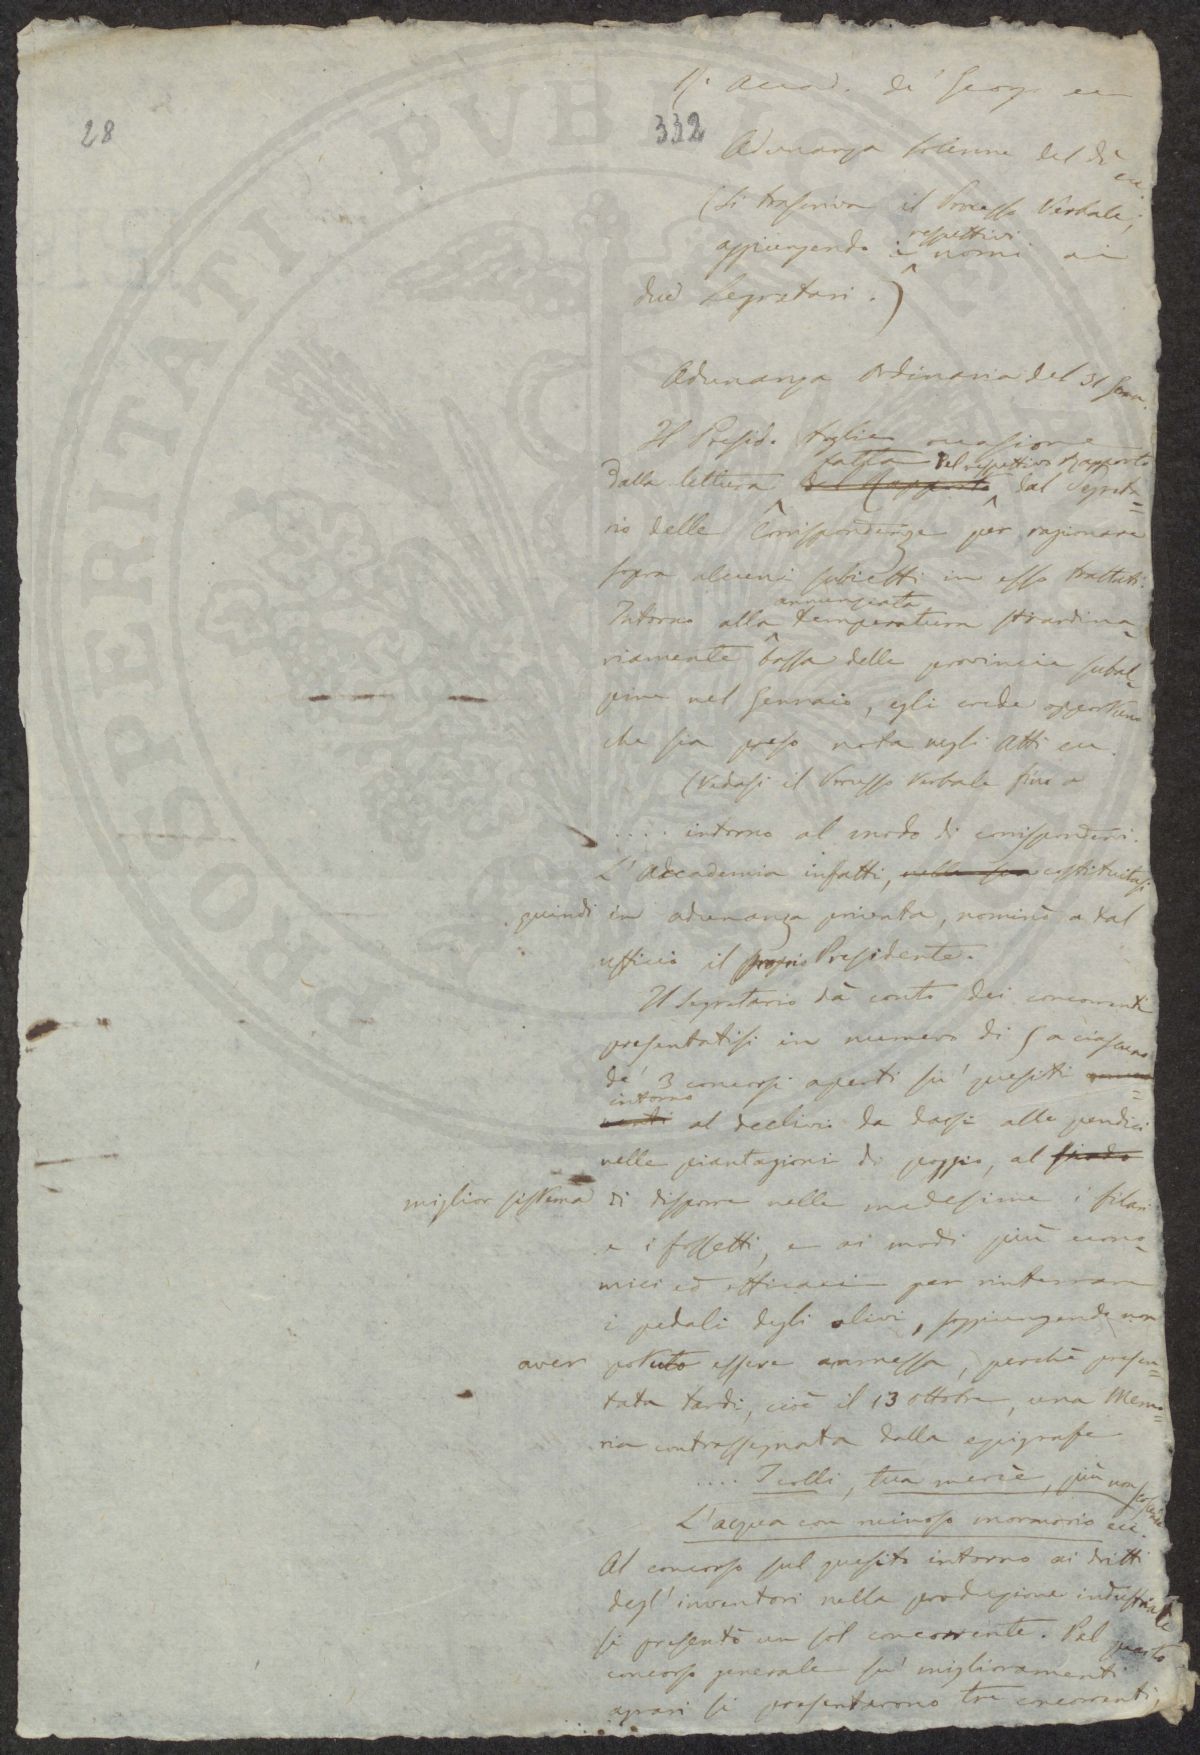 28
332
R. Accad. de' Georg. ec
Adunanza solenne del dì ec.
(Si trascriva il Processo Verbale,
aggiungendo i respettivi nomi ai
due Segretari.)
Adunanza ordinaria del 31 Genn.
Il Presid. toglie occasione
dalla lettura fatta del respettivo Rapporto del Rapporto dal Segreta=
rio delle Corrispondenze per ragionare
sopra alcuni subietti in esso trattati.
Intorno alla annunziata temperatura straordina=
riamente bassa delle provincie subal=
pine nel Gennaio, egli crede opportuno
che sia preso nota negli Atti ec.
(Vedasi il Processo Verbale fino a
.... intorno al modo di corrispondervi.
L'Accademia infatti, nella sua costituitasi
quindi in adunanza privata, nominò a tal
ufficio il proprio Presidente.
Il Segretario dà conto dei concorrenti
presentatisi in numero di 5 a ciascuno
de' 3 concorsi aperti su' quesiti
intorno al declivio da darsi alle pendici
nelle piantagioni di poggio, al modo
miglior sistema di disporre nelle medesime i filari
e i fossetti, e ai modi più econo=
mici ed efficaci per rinterrare
i pedali degli olivi, soggiungendo non
aver potuto essere ammessa, perchè presen=
tata tardi, cioè il 13 ottobre, una Memo=
ria contrassegnata dalla epigrafe
.... I colli, tua mercè, più non scoscende
L'acqua con ruinoso mormorio ec.
Al concorso sul quesito intorno ai dritti
degl'inventori nella produzione industriale
si presentò un sol concorrente. Pel
concorso generale su' miglioramenti
agrari si presentarono tre concorrenti,